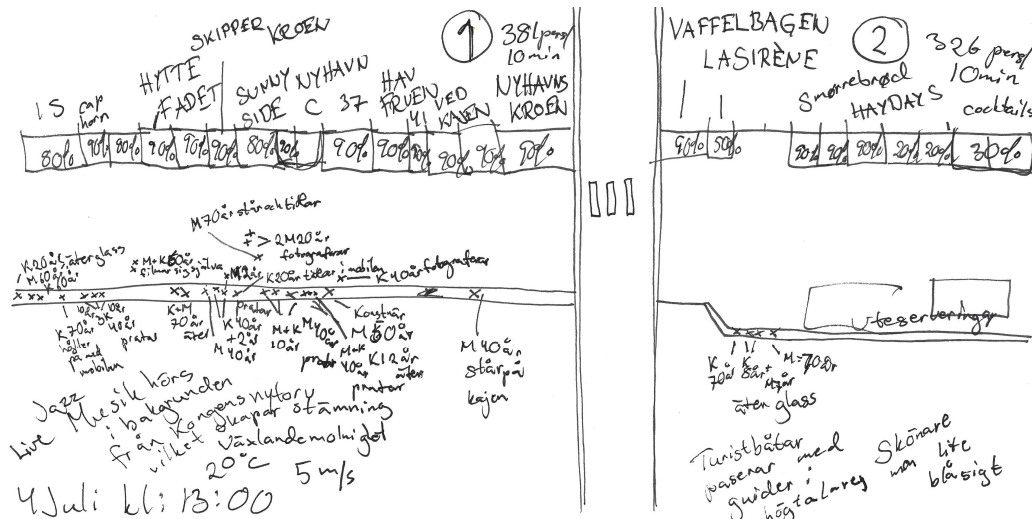 SKIPPER KROEN
1
381 pers/
10 min
HYTTE
FADET
SUNNY
SIDE
NYHAVN
C
37
HAV
FRUEN
41
VED
KAJEN
NYHAVNS
KROEN
IS
cap
horn
80% 90% 80% 90% 90% 90% 80% 90% 90% 90% 90% 90% 90% 90%
M 70 år står och tittar
2 M 20 år
fotograferar
K 20 år äter glass
M 60 år
K 60 år
M+K 60 år
filmar sig själva
K 20 år tittar i mobilen
K 40 år fotograferar
K 70 år
håller
på med
mobilen
40 år
pratar
K+M
70 år
äter
pratar
K 40 år
+ 2 år
M 40 år
M+K
10 år
M 40 år
pratar
M+K
40 år
Konstnär
M 60 år
K 12 år
äter
pratar
M 40 år
står på
kajen
Jazz
Live Musik hörs
i bakgrunden
från Kongens nytorv
vilket skapar stämning
Växlande molnighet
20°C 5 m/s
4 Juli kl: 13:00
VAFFELBAGEN
LASIRÈNE
2
326 pers/
10 min
Smørrebrød
HAYDAYS
cocktails
90% 50% 90% 90% 90% 20% 20% 30%
Uteserveringar
K
70 år
K
8 år
M=70 år
M 7 år
äter glass
Turistbåtar
paserar med
guider i
högtalare
Skönare
men lite
blåsigt